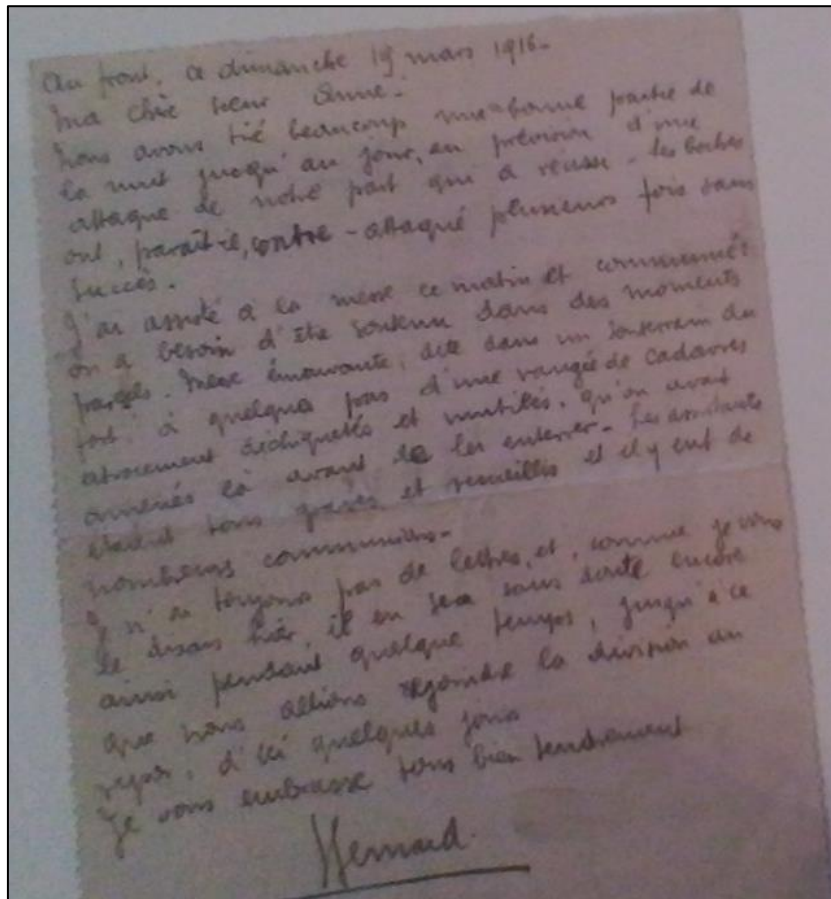 Au front, ce dimanche 19 mars 1916-
Ma chère soeur Anne-
Nous avons tiré beaucoup une bonne partie de
la nuit jusqu'au jour, en prévision d'une
attaque de notre part qui a réussi - les boches
ont, paraît-il, contre-attaqué plusieurs fois sans
succès.
J'ai assisté à la messe ce matin et communié:
on a besoin d'être soutenu dans des moments
pareils. Messe émouvante, dite dans un souterrain du
fort à quelques pas d'une rangée de cadavres
atrocement déchiquetés et mutilés, qu'on avait
amenés là avant de les enterrer- Les assistants
étaient tous graves et recueillis et il y eut de
nombreuses communions-
Je n'ai toujours pas de lettres, et, comme je vous
le disais hier, il en sera sans doute encore
ainsi pendant quelque temps, jusqu'à ce
que nous allions rejoindre la division au
repos, d'ici quelques jours
Je vous embrasse tous bien tendrement